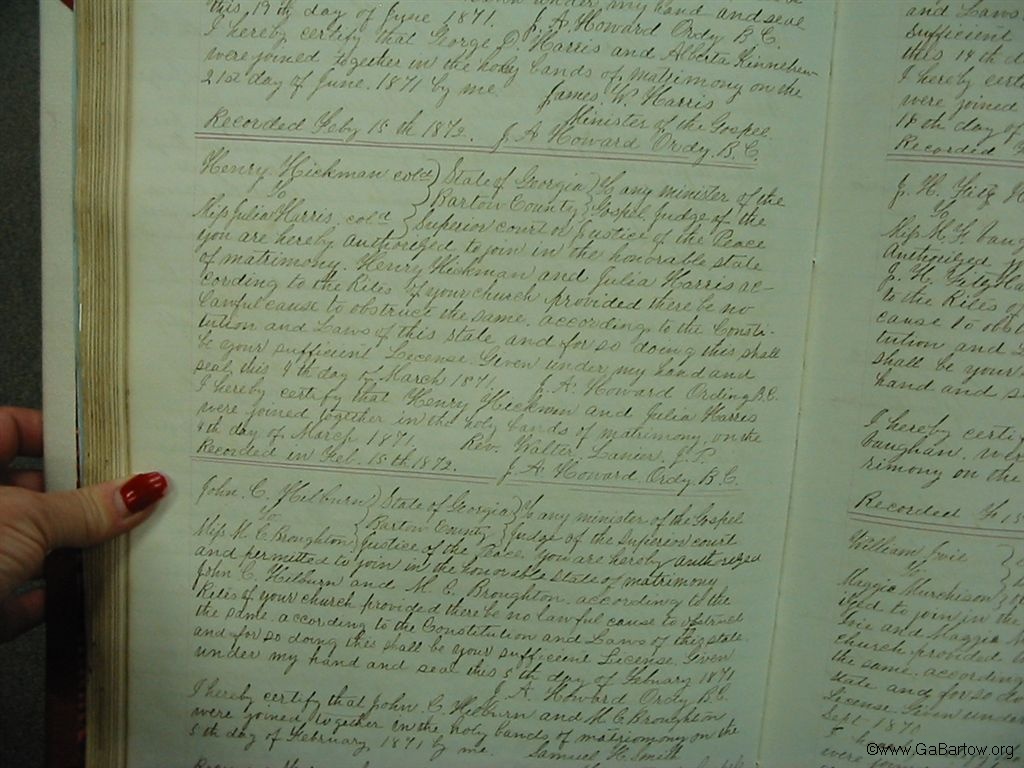 this 19th day of June 1871. J. A. Howard Ordy B. C.
I hereby certify that George D. Harris and Alberta Kinnebrew
were joined together in the holy bands of matrimony on the
21st day of June. 1871 by me. James. W. Harris
Minister of the Gospel
Recorded Feby 15th 1872. J. A Howard Ordy. B. C.
Henry Hickman cold } State of Georgia } To any minister of the
To } Bartow County } Gospel Judge of the
Miss Julia Harris. cold } Superior court or Justice of the Peace
you are hereby authorized to join in the honorable state
of matrimony. Henry Hickman and Julia Harris ac-
cording to the Rites of your church provided there be no
Lawful cause to obstruct the same. according to the Consti-
tution and Laws of this state and for so doing this shall
be your sufficient License Given under my hand and
seal this 4th day of March 1871. J. A. Howard Ordinary B.C.
I hereby certify that Henry Hickman and Julia Harris
were joined together in the holy bands of matrimony on the
4th day of March 1871. Rev. Walter. Lanier, J. P.
Recorded in Feb. 15th 1872. J. A Howard Ordy. B. C.
John C. Hilburn } State of Georgia } To any minister of the Gospel
To } Bartow County } Judge of the Superior court
Miss M. E. Broughton } Justice of the Peace you are hereby authorized
and permitted to join in the honorable state of matrimony
John C. Hilburn and M. E. Broughton. according to the
Rites of your church provided there be no lawful cause to obstruct
the same. according to the Constitution and Laws of this state
and for so doing this shall be your sufficient License. Given
under my hand and seal this 5th day of February 1871
J. A. Howard Ordy B. C.
I hereby certify that John C. Hilburn and M. E. Broughton
were joined together in the holy bands of matrimony on the
5th day of February. 1871 by me. Samuel H. Smith
and Laws
Sufficient
this 14th d
I hereby certi
were joined
18th day of
Recorded
J. H.
To
Miss M. F. Vau
Authorized
J. H.
to the Rites of
cause to obst
tution and L
shall be your
hand and s
I hereby certif
Vaughan. we
rimony on the
Recorded
William Ivie
To
Maggie Murchison
ited to join in the
Ivie and Maggie M
church provided
the same. according
state and for so do
License. Given under
Sept 1870
I
were joined
©www.GaBartow.org